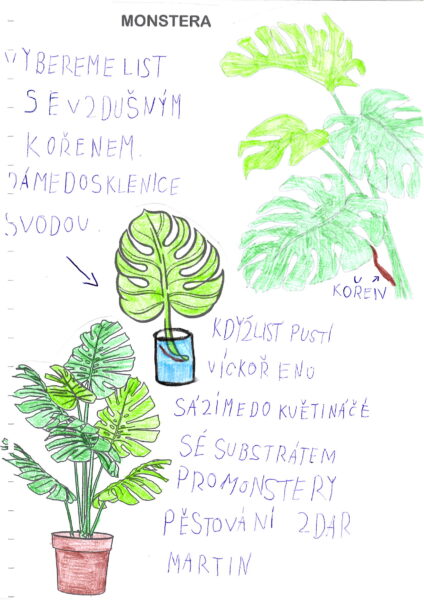 MONSTERA
VYBEREME LIST
S E VZDUŠNÝM
KOŘENEM.
DÁMEDOSKLENICE
SVODOU.
KOŘEN
KDYŽLIST PUSTÍ
VÍCKOŘENŮ
SÁZÍMEDO KVĚTINÁČĚ
SÉ SUBSTRÁTEM
PROMONSTERY
PĚSTOVÁNÍ ZDAR
MARTIN